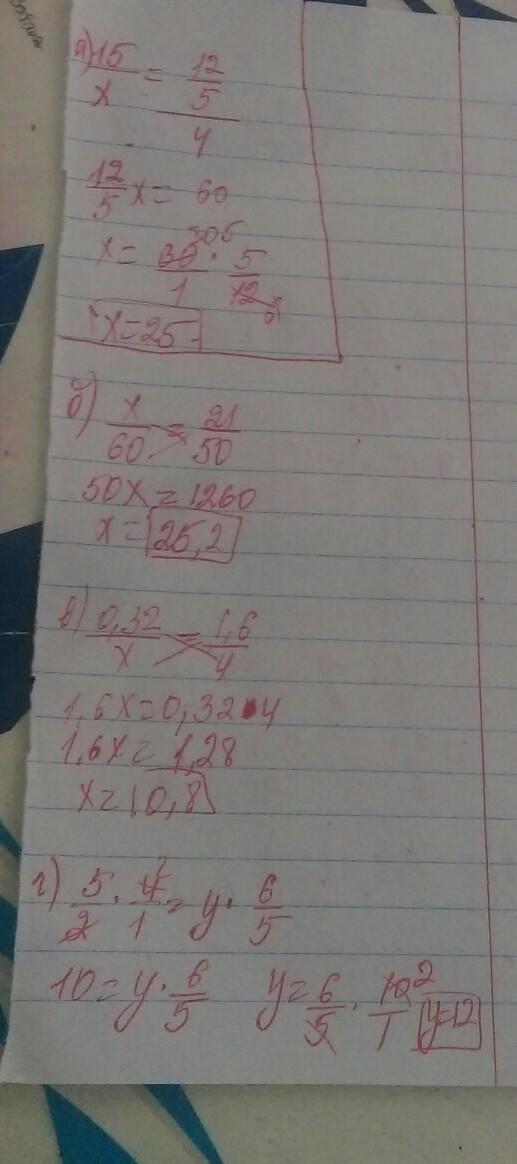 а) 15/x = 12/5 / 4
12/5 x = 60
x = 60/1 · 5/12
x = 25
б) x/60 = 21/50
50x = 1260
x = 25,2
в) 0,32/x = 1,6/4
1,6x = 0,32·4
1,6x = 1,28
x = 0,8
г) 5/2 · 4/1 = y · 6/5
10 = y · 6/5 y = 6/5 · 10/1 y=12